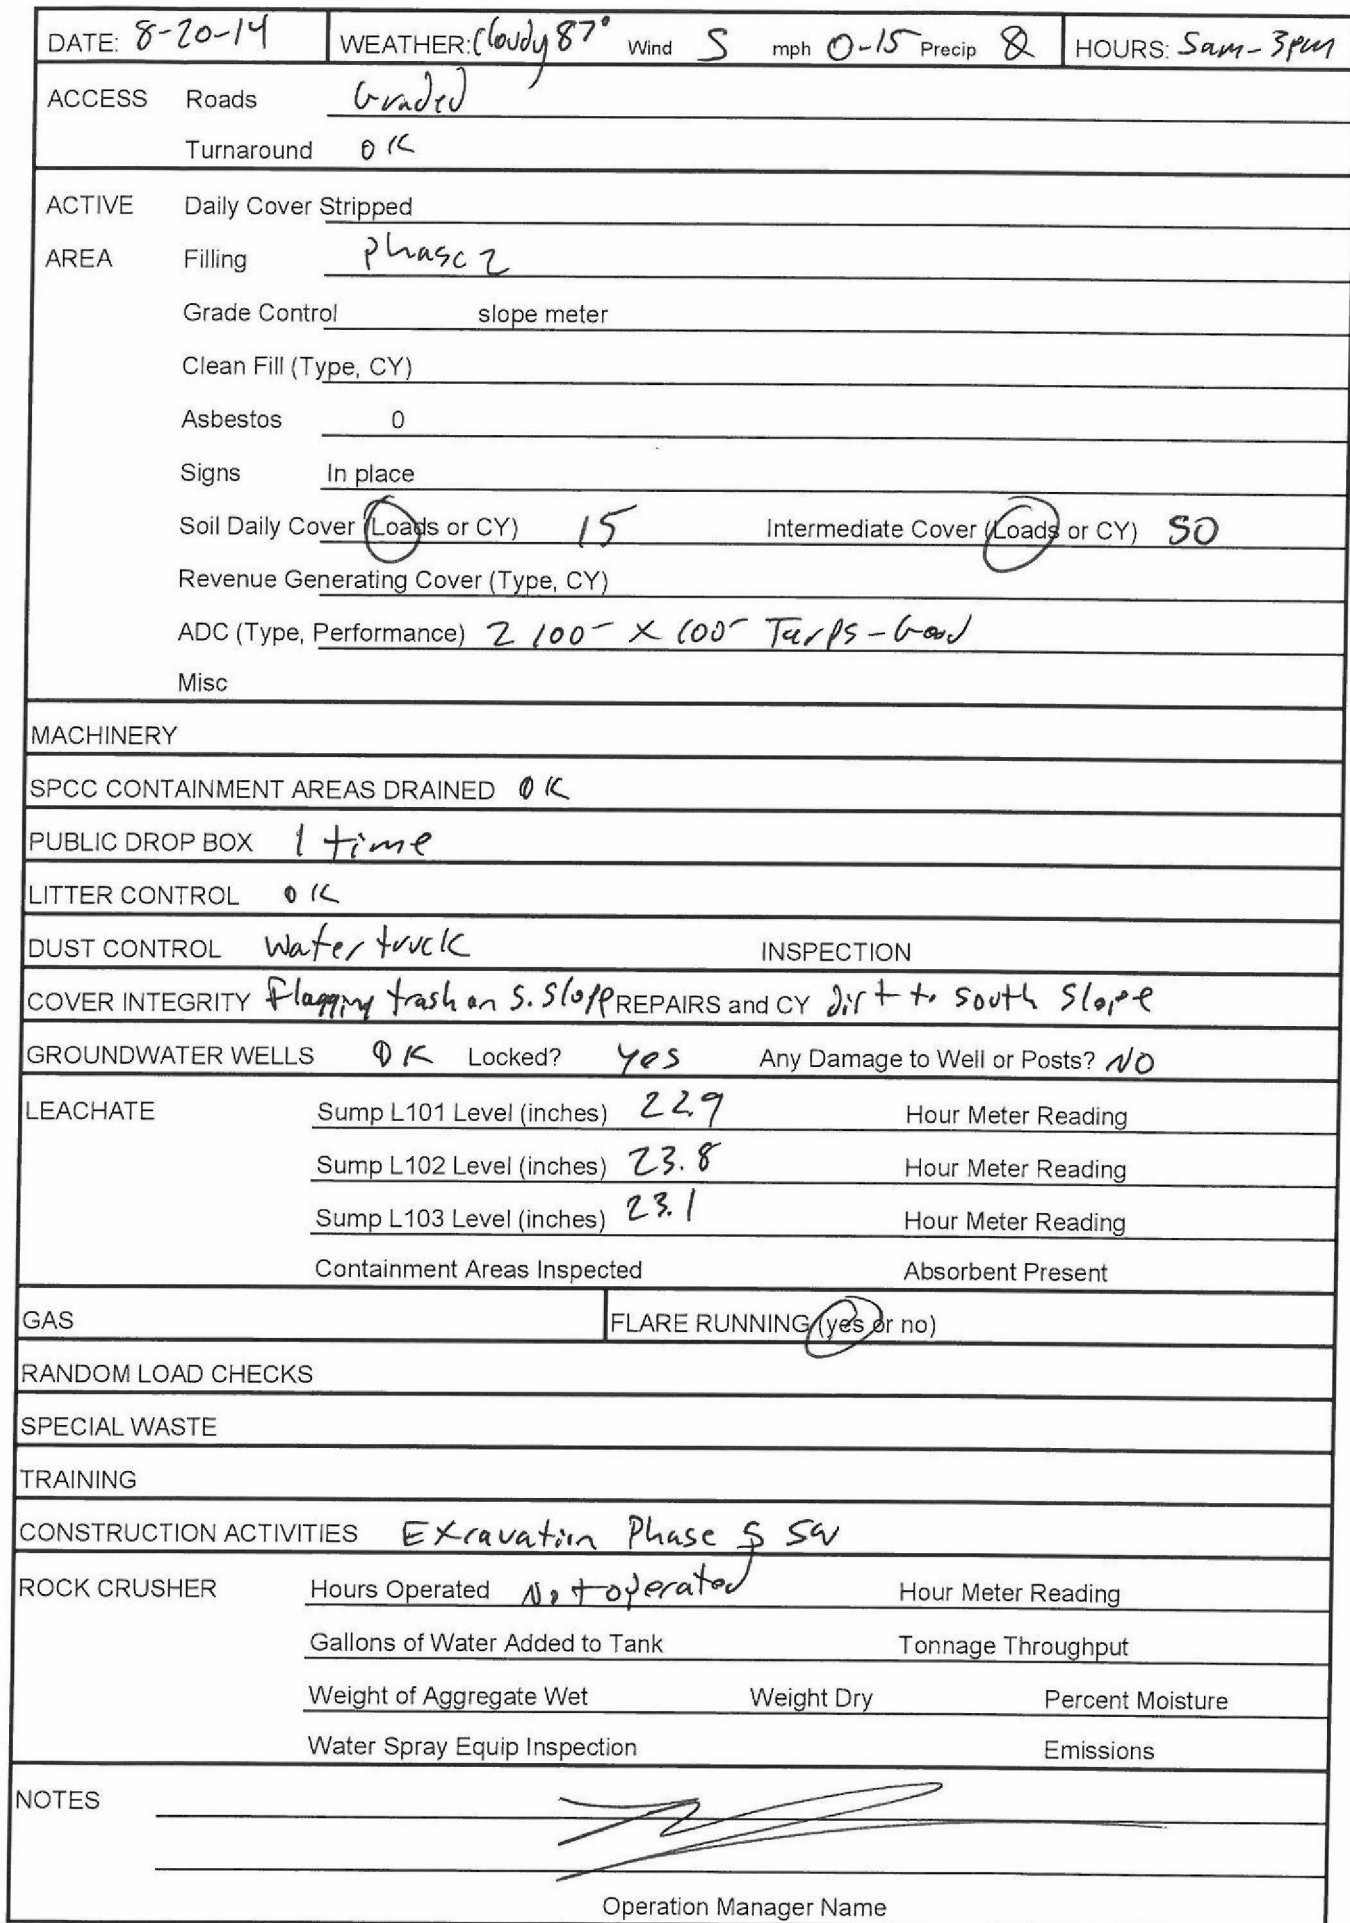 DATE: 8-20-14 WEATHER: Cloudy 87° Wind S mph 0-15 Precip 0 HOURS: 5am-3pm
ACCESS Roads Graded
Turnaround OK
ACTIVE Daily Cover Stripped
AREA Filling Phase 2
Grade Control slope meter
Clean Fill (Type, CY)
Asbestos 0
Signs In place
Soil Daily Cover (Loads or CY) 15 Intermediate Cover (Loads or CY) 50
Revenue Generating Cover (Type, CY)
ADC (Type, Performance) 2 100- x 100- Tarps - Good
Misc
MACHINERY
SPCC CONTAINMENT AREAS DRAINED OK
PUBLIC DROP BOX 1 time
LITTER CONTROL OK
DUST CONTROL Water truck INSPECTION
COVER INTEGRITY Flagging trash on S. Slope REPAIRS and CY dirt to South Slope
GROUNDWATER WELLS OK Locked? yes Any Damage to Well or Posts? NO
LEACHATE Sump L101 Level (inches) 22.9 Hour Meter Reading
Sump L102 Level (inches) 23.8 Hour Meter Reading
Sump L103 Level (inches) 23.1 Hour Meter Reading
Containment Areas Inspected Absorbent Present
GAS FLARE RUNNING (yes or no)
RANDOM LOAD CHECKS
SPECIAL WASTE
TRAINING
CONSTRUCTION ACTIVITIES Excavation Phase 5 SW
ROCK CRUSHER Hours Operated Not operated Hour Meter Reading
Gallons of Water Added to Tank Tonnage Throughput
Weight of Aggregate Wet Weight Dry Percent Moisture
Water Spray Equip Inspection Emissions
NOTES
Operation Manager Name